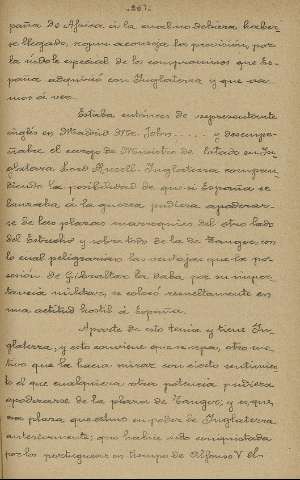 267.
paña de Africa á la cual no debiera haber-
se llegado, segun aconseja la prevision, por
la índole especial de los compromisos que Es-
paña adquirió con Inglaterra y que va-
mos á ver.
Estaba entónces de representante
inglés en Madrid Mr. John ..... y desempe-
ñaba el cargo de Ministro de Estado en In-
glaterra Lord Russell. Inglaterra compren-
diendo la posibilidad de que si España se
lanzaba á la guerra pudiera apoderar-
se de las plazas marroquíes del otro lado
del Estrecho y sobre todo de la de Tanger, con
lo cual peligrarian las ventajas que la po-
sesion de Gibraltar la daba por su impor-
tancia militar, se colocó resueltamente en
una actitud hostil á España.
Aparte de esto tenia y tiene In-
glaterra, y esto conviene que se sepa, otro mo-
tivo que la hacia mirar con cierto sentimien-
to el que cualquiera otra potencia pudiera
apoderarse de la plaza de Tanger; y es que
esa plaza que estuvo en poder de Inglaterra
anteriormente; que habia sido conquistada
por los portugueses en tiempo de Alfonso V el